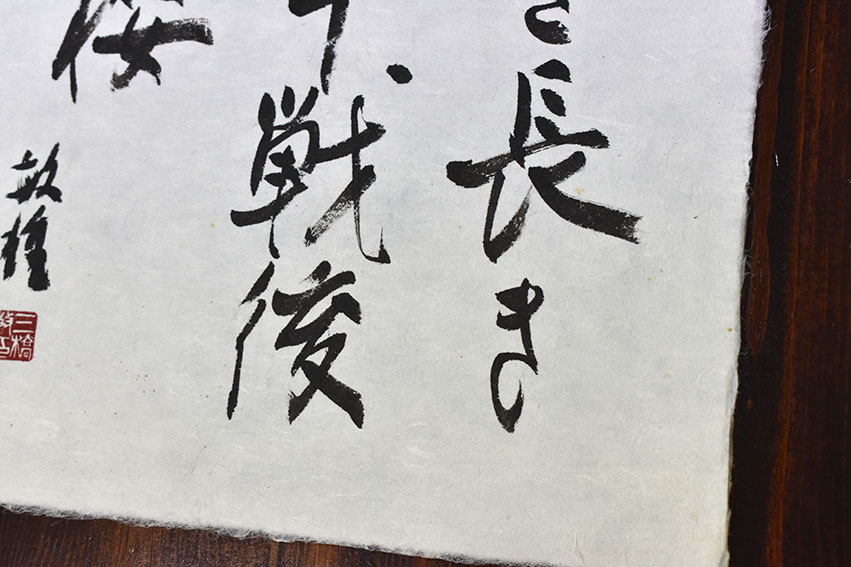 長き
戦後
桜
敏雄
三橋
敏印